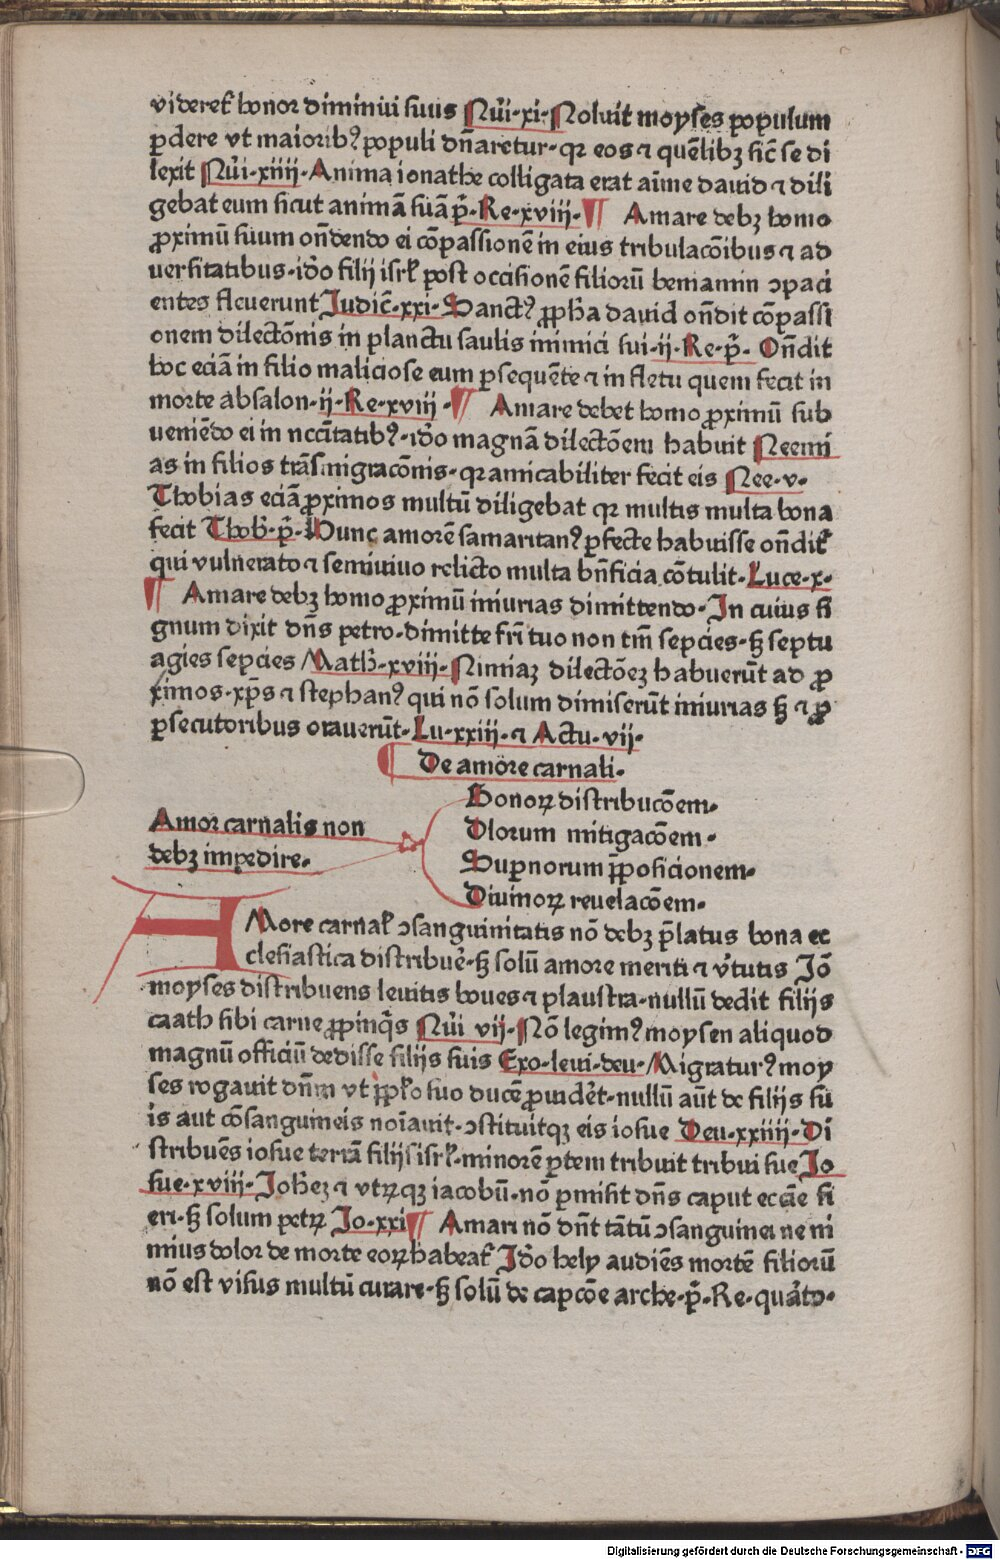 videret᷑ honor diminui suus Nūi·xi·Noluit moyses populum
ꝑdere vt maiorib⁹ populi dn̄aretur·qꝛ eos ⁊ quēlibꝫ sic̄ se di
lexit Nūi·xiiii·Anima ionathe colligata erat aīme dauid ⁊ dili
gebat eum sicut animā suā p̄·Re·xviii·¶ Amare debꝫ homo
ꝓximū suum on̄dendo ei cōpassionē in eius tribulacōibus ⁊ ad
uersitatibus·idō filij isrl̄ post occisionē filiorū beniamin ↄpaci
entes fleuerunt Judic̄·xxi·Sanct⁹ ꝓph̄a dauid on̄dit cōpassi
onem dilectōnis in planctu saulis inimici sui·ij·Re·p̄· On̄dit
hoc eciā in filio maliciose eum ꝑsequēte ⁊ in fletu quem fecit in
morte absalon·ij·Re·xviij·¶ Amare debet homo ꝓximū sub
ueniēdo ei in nccītatib⁹·idō magnā dilectōem habuit Neemi
as in filios trāsmigracōnis·qꝛ amicabiliter fecit eis Nee·v·
Thobias eciā ꝓximos multū diligebat qꝛ multis multa bona
fecit Thob̄·p̄·Hunc amorē samaritan⁹ ꝑfecte habuisse on̄dit᷑
qui vulnerato ⁊ semiuiuo relicto multa bn̄ficia cōtulit·Luce·x·
¶ Amare debꝫ homo ꝓximū iniurias dimittendo·In cuius si
gnum dixit dn̄s petro·dimitte fr̄i tuo non tm̄ sepcies·sꝫ septu
agies sepcies Math̄·xviii·Nimiaꝫ dilectōeꝫ habuerūt ad ꝓ
ximos·xp̄s ⁊ stephan⁹ qui nō solum dimiserūt iniurias sꝫ ⁊ ꝓ
ꝑsecutoribus orauerūt·Lu·xxiii·⁊ Actu·vii·
¶ De amore carnali·
Honoꝝ distribucōem·
Amor carnalis non
Dlorum mitigacōem·
debꝫ impedire·
Suꝑnorum p̄posicionem·
Diuinoꝝ reuelacōem·
AMore carnal̄ ↄsanguinitatis nō debꝫ p̄latus bona ec
clesiastica distribuē·sꝫ solū amore meriti ⁊ v̄tutis Jō
moyses distribuens leuitis boues ⁊ plaustra·nullū dedit filijs
caath sibi carne ꝓpinq̄s Nūi vij·Nō legim⁹ moysen aliquod
magnū officiū dedisse filijs suis Exo·leui·deu·Migratur⁹ moy
ses rogauit dn̄m vt p̄pl̄o suo ducē ꝓuidēt·nullū aūt de filijs su
is aut cōsanguineis noīauit·ↄstituitqꝫ eis iosue Deu·xxiiij·Di
stribuēs iosue terrā filijs isrl̄·minorē ꝑtem tribuit tribui sue Jo
sue·xviii·Joh̄eꝫ ⁊ vtꝝqꝫ iacobū·nō ꝑmisit dn̄s caput eccīe fi
eri·sꝫ solum petꝝ Jo·xxi¶ Amari nō dn̄t tātū ↄsanguinei ne ni
mius dolor de morte eoꝝ habeat᷑ Jdō hely audiēs mortē filiorū
nō est visus multū curare·sꝫ solū de capcōe arche·p̄·Re·quārto·
Digitalisierung gefördert durch die Deutsche Forschungsgemeinschaft - DFG